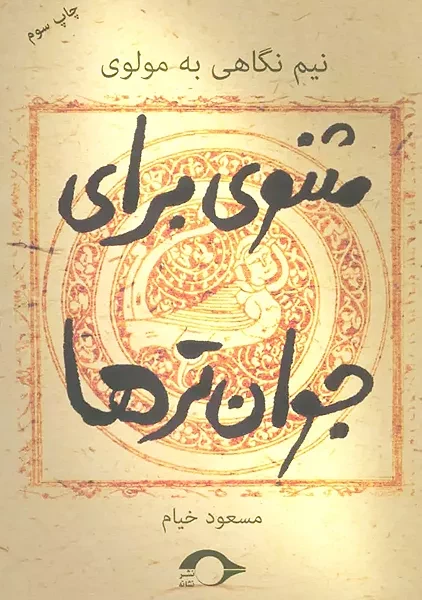 چاپ سوم
نیم نگاهی به مولوی
مثنوی برای
جوان‌ترها
مسعود خیام
نشر
نشانه